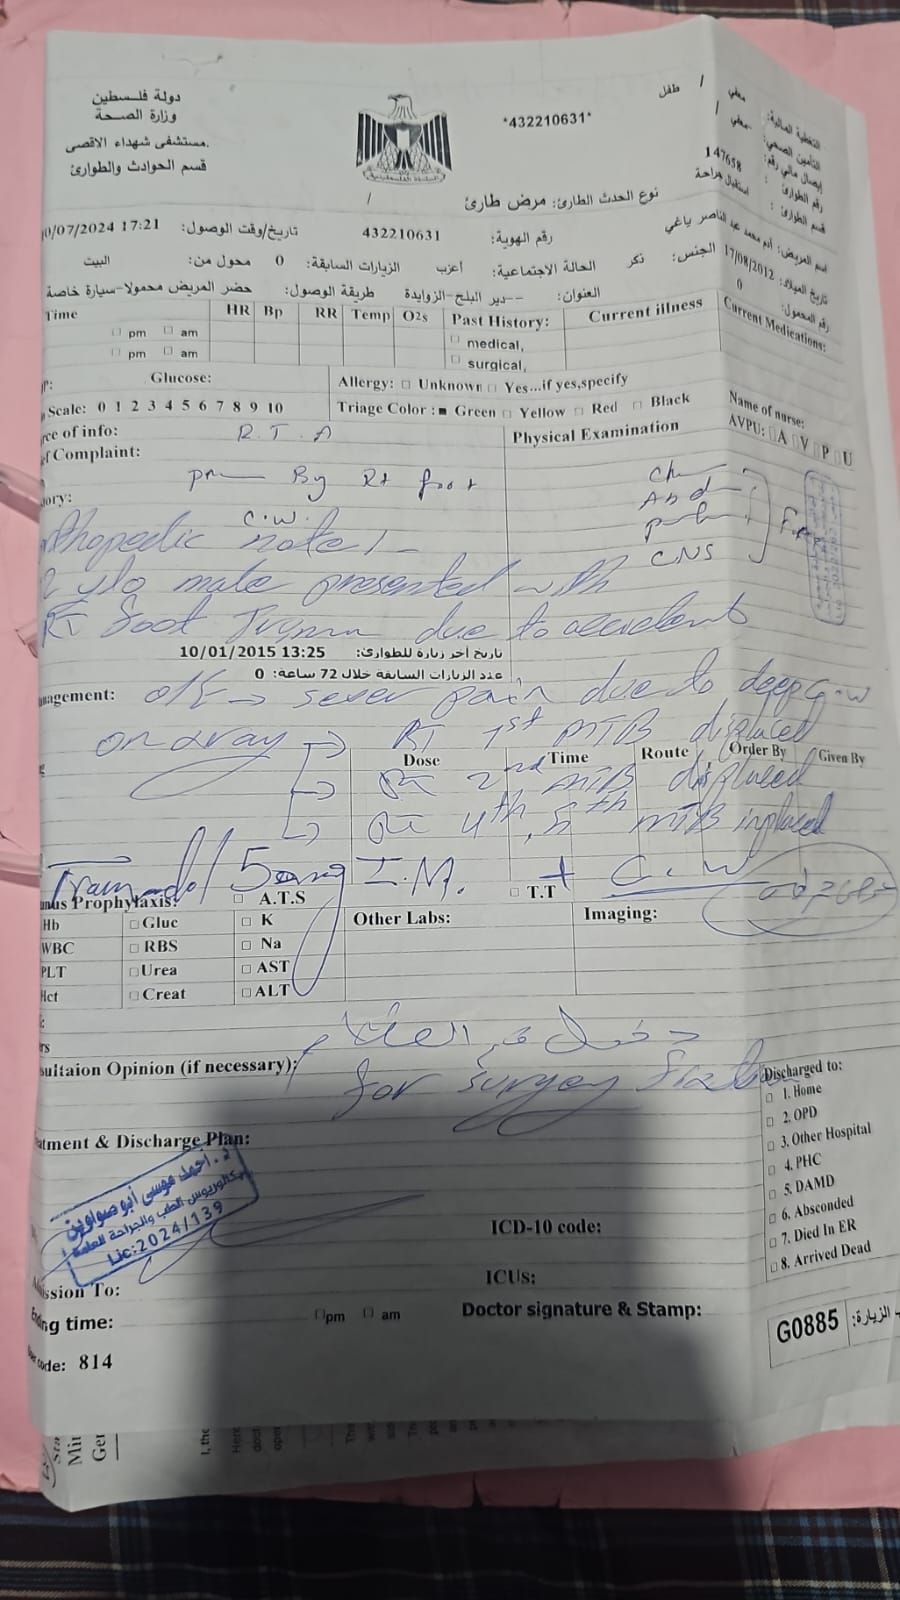 دولة فلسطين
وزارة الصحة
مستشفى شهداء الاقصى.
قسم الحوادث والطوارئ
*432210631*
طفل
التغطية المالية:
التأمين الصحي:
إيصال مالي رقم:
رقم الطوارئ: 147658
قسم الطوارئ: استقبال جراحة
نوع الحدث الطارئ: مرض طارئ
اسم المريض: ادم محمد عبد الناصر ياغي
رقم الهوية: 432210631
تاريخ/وقت الوصول: 0/07/2024 17:21
تاريخ الميلاد: 17/08/2012
الجنس: ذكر
الحالة الاجتماعية: أعزب
الزيارات السابقة: 0
محول من: البيت
رقم المحمول: 0
العنوان: --دير البلح-الزوايدة
طريقة الوصول: حضر المريض محمولا-سيارة خاصة
Time HR Bp RR Temp O2s Past History: Current illness Current Medications:
pm am medical,
pm am surgical,
Glucose: Allergy: Unknown Yes...if yes,specify
Scale: 0 1 2 3 4 5 6 7 8 9 10 Triage Color : Green Yellow Red Black
Name of nurse:
AVPU: A V P U
ce of info: R.T.A Physical Examination
Complaint:
By Rt foot
ory: C.W.
CNS
thopedic note:-
2 y/o male presented with
RT foot due to accident
تاريخ آخر زيارة للطوارئ: 10/01/2015 13:25
عدد الزيارات السابقة خلال 72 ساعة: 0
nagement: O/E → sever pain due to deep C.W
on xray → RT 1st MTB displaced
Dose Time Route Order By Given By
→ RT 2nd MTB displaced
→ RT 4th, 5th MTB inplaced
Tramadol 50mg I.M. + C.W
nus Prophylaxis: A.T.S T.T
Hb Gluc K Other Labs: Imaging:
WBC RBS Na
PLT Urea AST
Hct Creat ALT
rs
دخول قسم العظام
sultaion Opinion (if necessary):
for surgey
Discharged to:
1. Home
2. OPD
3. Other Hospital
4. PHC
5. DAMD
6. Absconded
7. Died In ER
8. Arrived Dead
atment & Discharge Plan:
د. احمد موسى أبو صواوين
بكالوريوس الطب والجراحة العامة
Lic:2024/139
ICD-10 code:
ission To: ICUs:
ng time: pm am Doctor signature & Stamp:
code: 814
G0885
الزيارة:
I, the